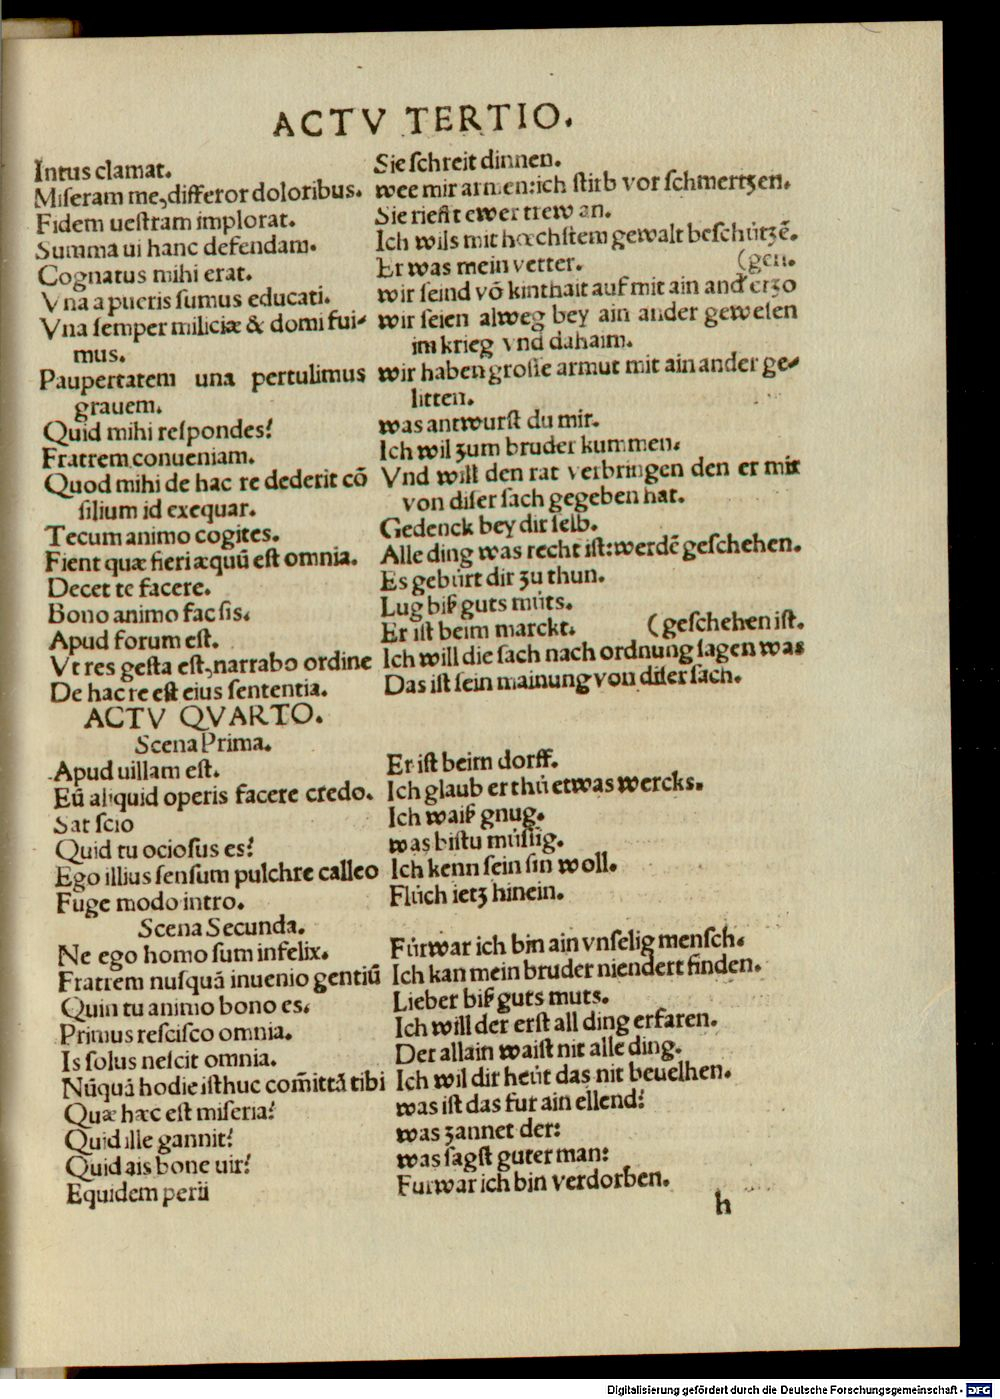 ACTV TERTIO.
Intus clamat. Sie ſchreit dinnen.
Miſeram me, differor doloribus. wee mir armen: ich ſtirb vor ſchmertzen.
Fidem ueſtram implorat. Sie riefft ewer trew an.
Summa ui hanc defendam. Ich wils mit hœchſtem gewalt beſchútzẽ.
Cognatus mihi erat. Er was mein vetter. (gen.
Vna a pueris ſumus educati. wir ſeind võ kinthait auf mit ain andͤ erzo
Vna ſemper miliciæ & domi fui- wir ſeien alweg bey ain ander geweſen
mus. im krieg vnd dahaim.
Paupertatem una pertulimus wir haben groſſe armut mit ain ander ge-
grauem. litten.
Quid mihi reſpondes? was antwurſt du mir.
Fratrem conueniam. Ich wil zum bruder kummen.
Quod mihi de hac re dederit cõ Vnd will den rat verbringen den er mir
ſilium id exequar. von diſer ſach gegeben hat.
Tecum animo cogites. Gedenck bey dir ſelb.
Fient quæ fieri æquũ eſt omnia. Alle ding was recht iſt: werdẽ geſchehen.
Decet te facere. Es gebúrt dir zu thun.
Bono animo fac ſis. Lug biß guts múts.
Apud forum eſt. Er iſt beim marckt. (geſchehen iſt.
Vt res geſta eſt, narrabo ordine Ich will die ſach nach ordnung ſagen was
De hac re eſt eius ſententia. Das iſt ſein mainung von diſer ſach.
ACTV QVARTO.
Scena Prima.
Apud uillam eſt. Er iſt beim dorff.
Eũ aliquid operis facere credo. Ich glaub er thú etwas wercks.
Sat ſcio Ich waiß gnug.
Quid tu ocioſus es? was biſtu múſſig.
Ego illius ſenſum pulchre calleo Ich kenn ſein ſin woll.
Fuge modo intro. Flúch ietz hinein.
Scena Secunda.
Ne ego homo ſum infelix. Fúrwar ich bin ain vnſelig menſch.
Fratrem nuſquã inuenio gentiũ Ich kan mein bruder niendert finden.
Quin tu animo bono es. Lieber biß guts muts.
Primus reſciſco omnia. Ich will der erſt all ding erfaren.
Is ſolus neſcit omnia. Der allain waiſt nit alle ding.
Nũquã hodie iſthuc com̃ittã tibi Ich wil dir heút das nit beuelhen.
Quæ hæc eſt miſeria? was iſt das fur ain ellend?
Quid ille gannit? was zannet der:
Quid ais bone uir? was ſagſt guter man:
Equidem perii Furwar ich bin verdorben.
h
Digitalisierung gefördert durch die Deutsche Forschungsgemeinschaft - DFG